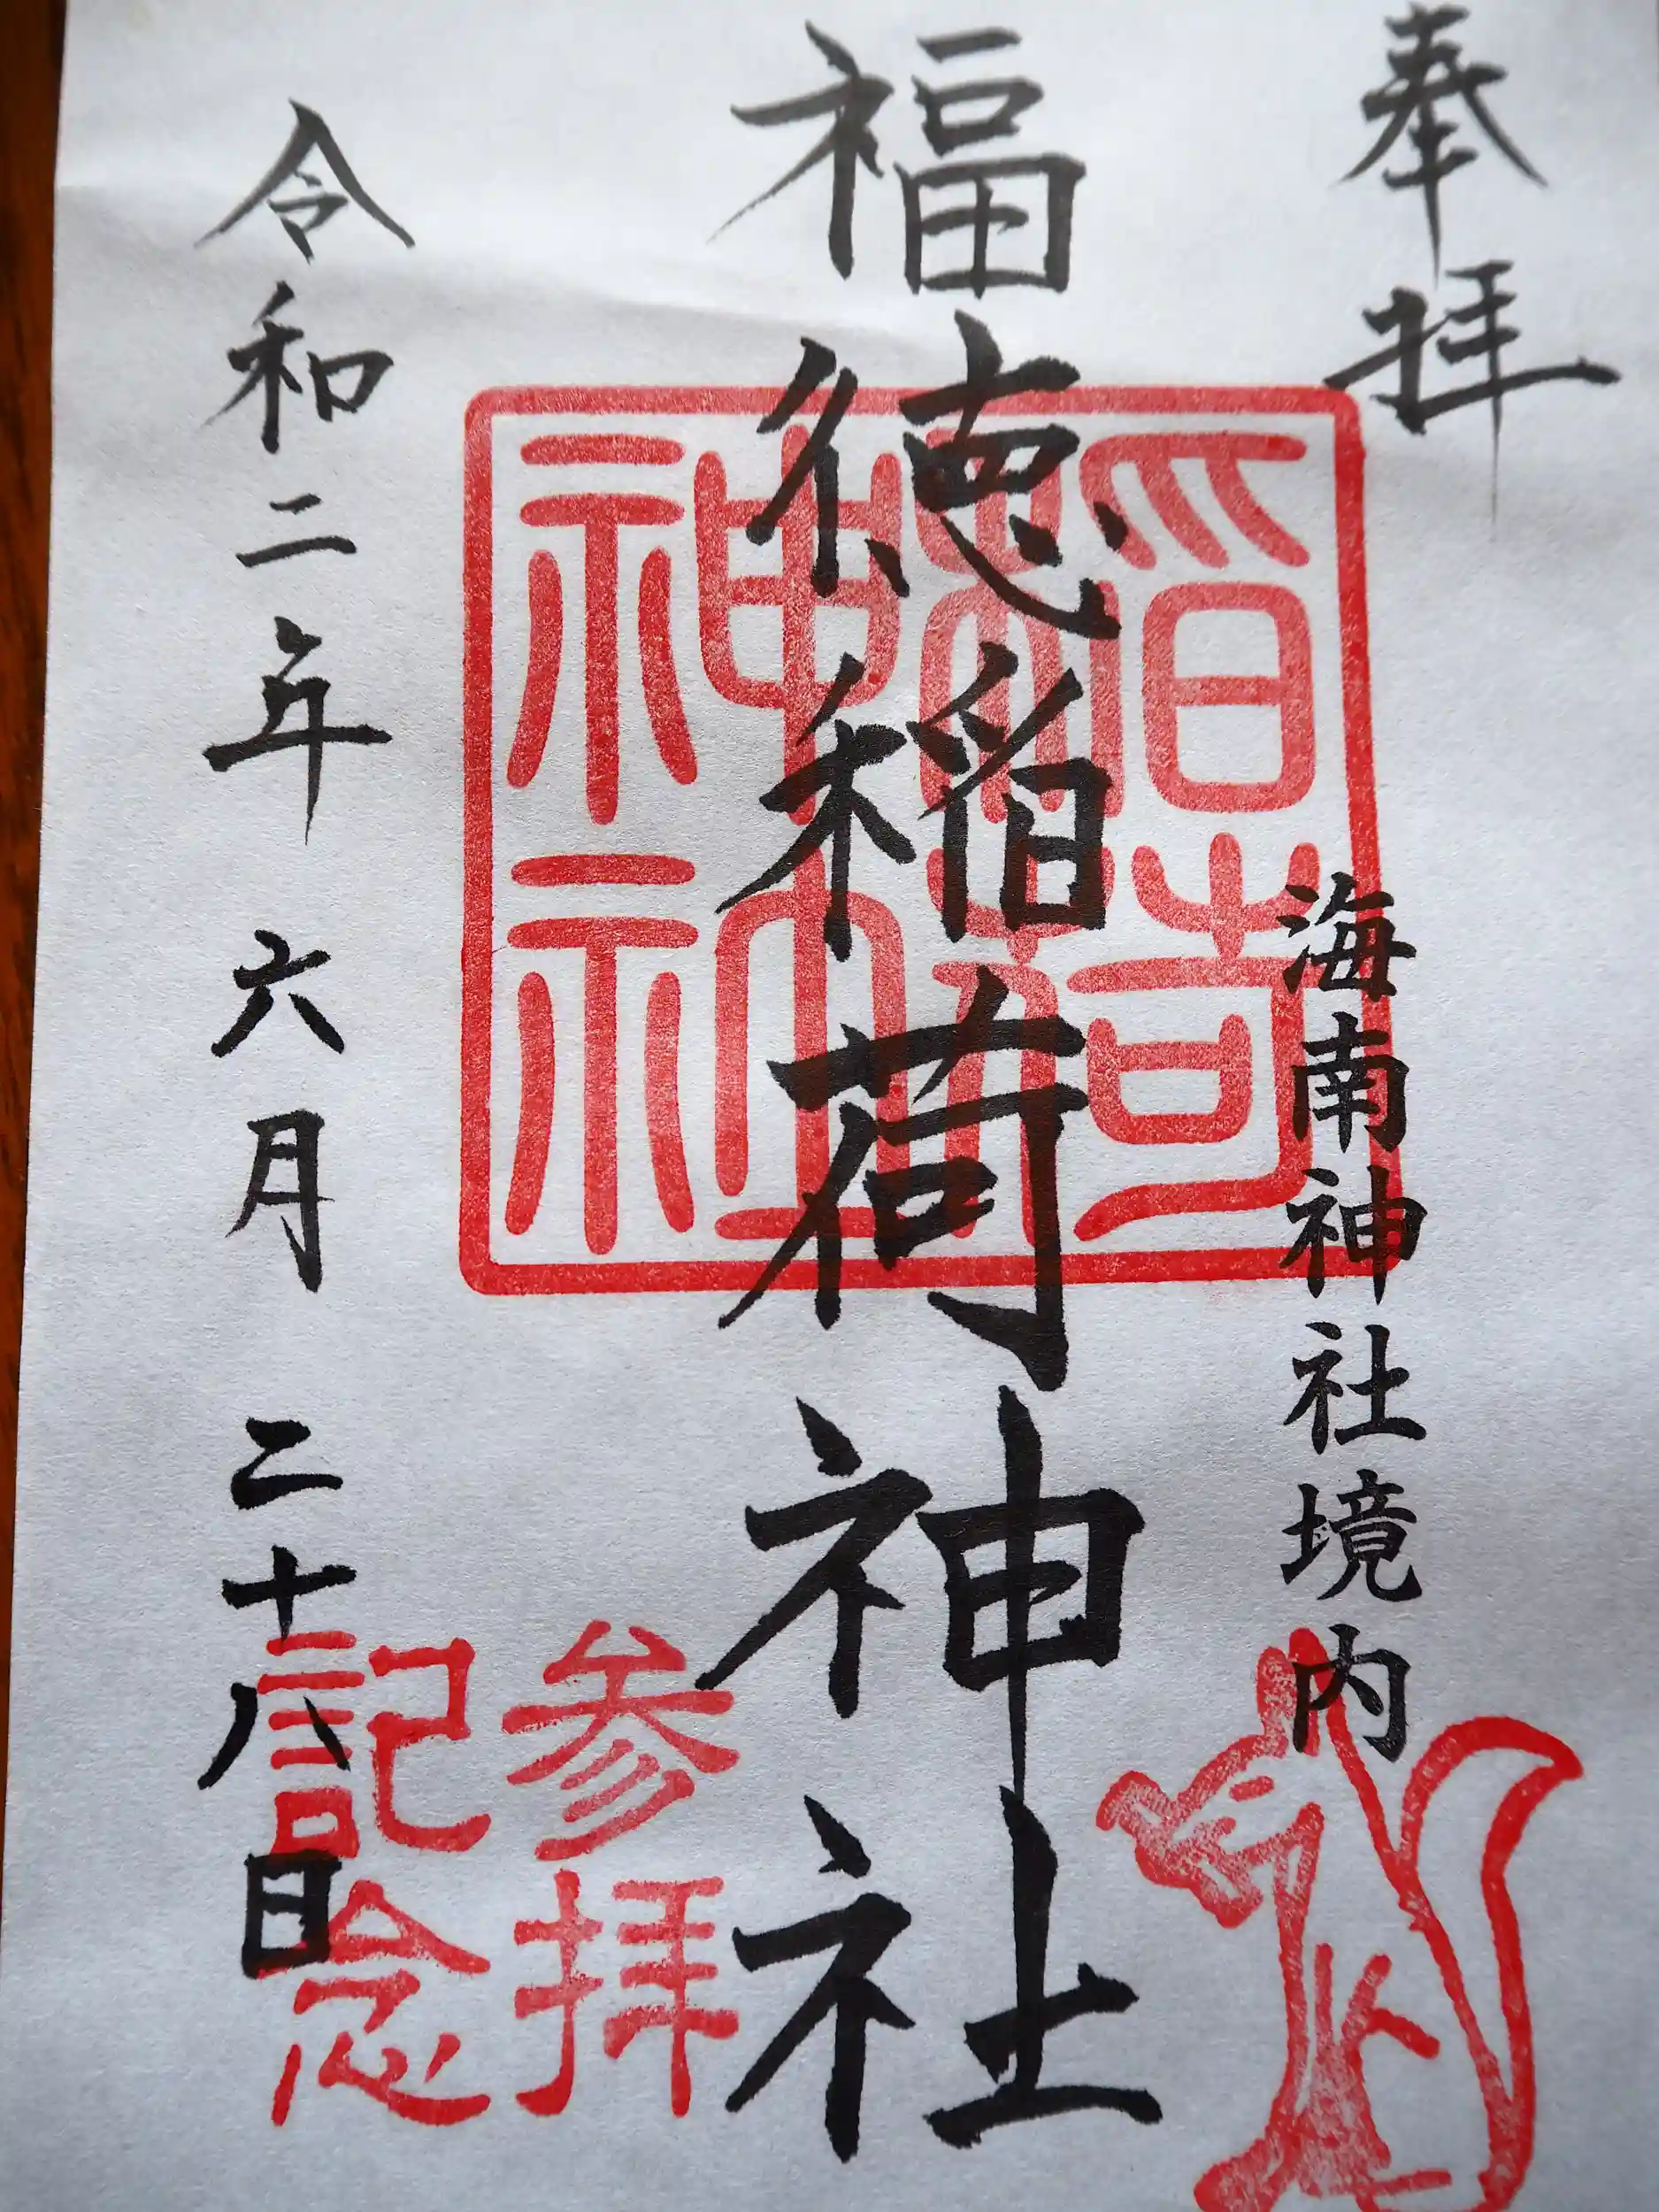 奉拝
海南神社境内
福徳稲荷神社
稲荷
神社
参拝
記念
令和二年 六月 二十八日